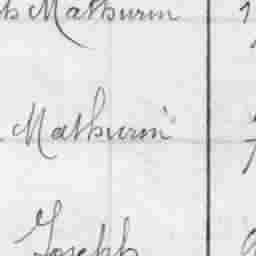 Mathurin
Mathurin
Joseph